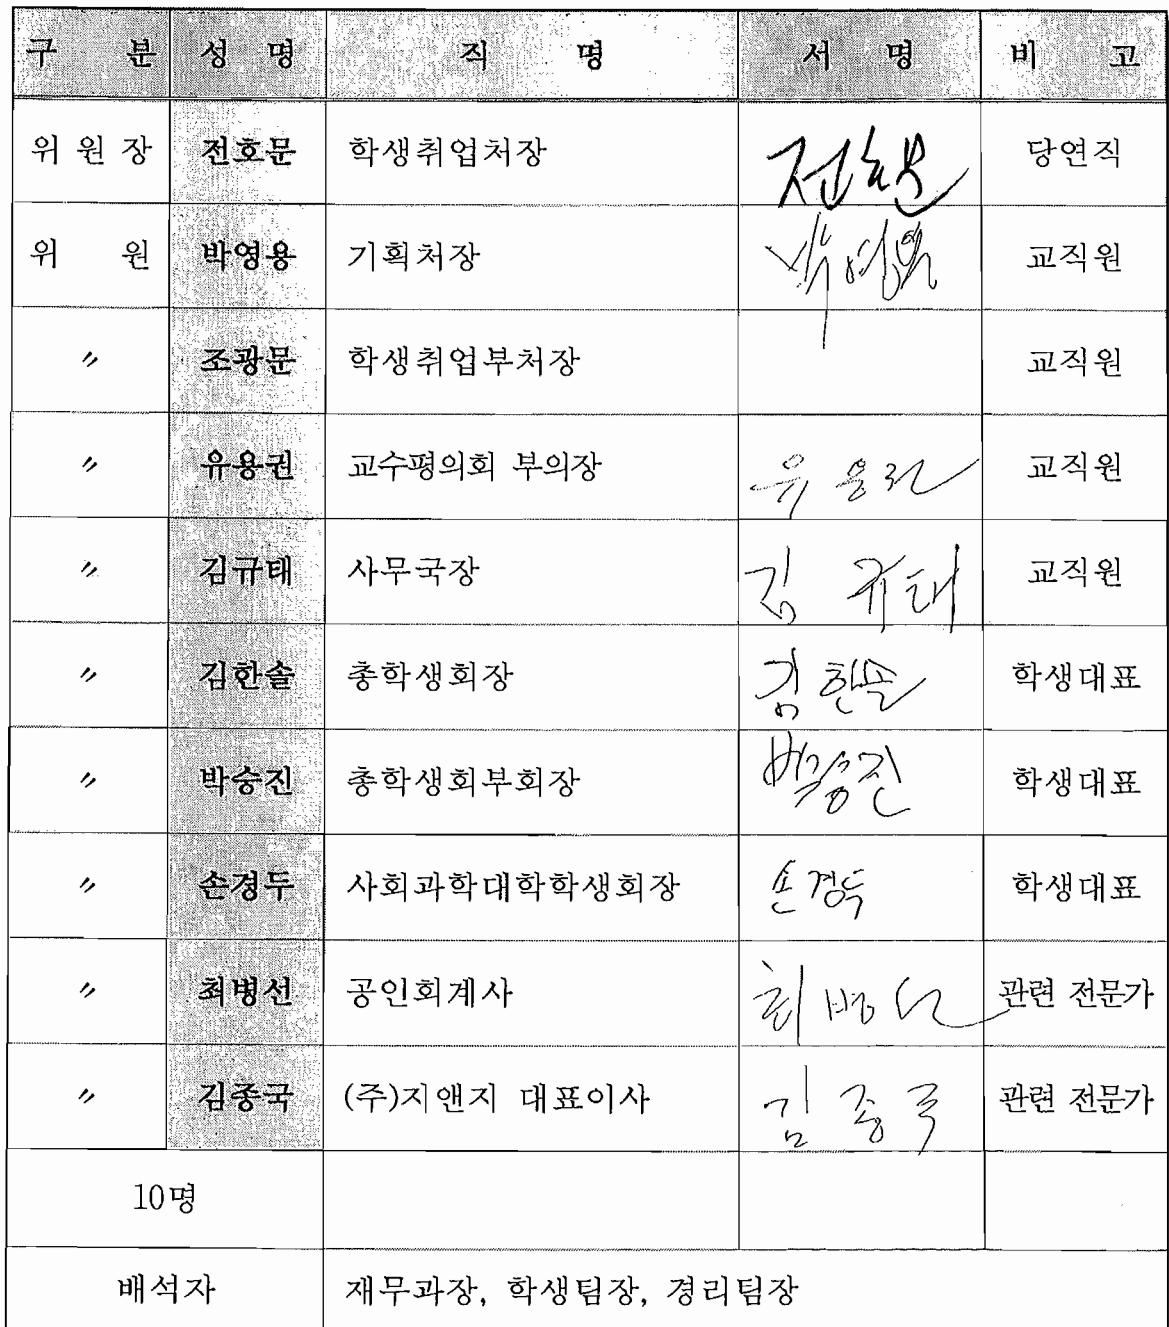 구 분 성 명 직 명 서 명 비 고
위 원 장 전호문 학생취업처장 전호문 당연직
위 원 박영용 기획처장 박영용 교직원
〃 조광문 학생취업부처장 교직원
〃 유용권 교수평의회 부의장 유용권 교직원
〃 김규태 사무국장 김 규태 교직원
〃 김한솔 총학생회장 김한솔 학생대표
〃 박승진 총학생회부회장 박승진 학생대표
〃 손경두 사회과학대학학생회장 손경두 학생대표
〃 최병선 공인회계사 최병선 관련 전문가
〃 김종국 (주)지앤지 대표이사 김종국 관련 전문가
10명
배석자 재무과장, 학생팀장, 경리팀장